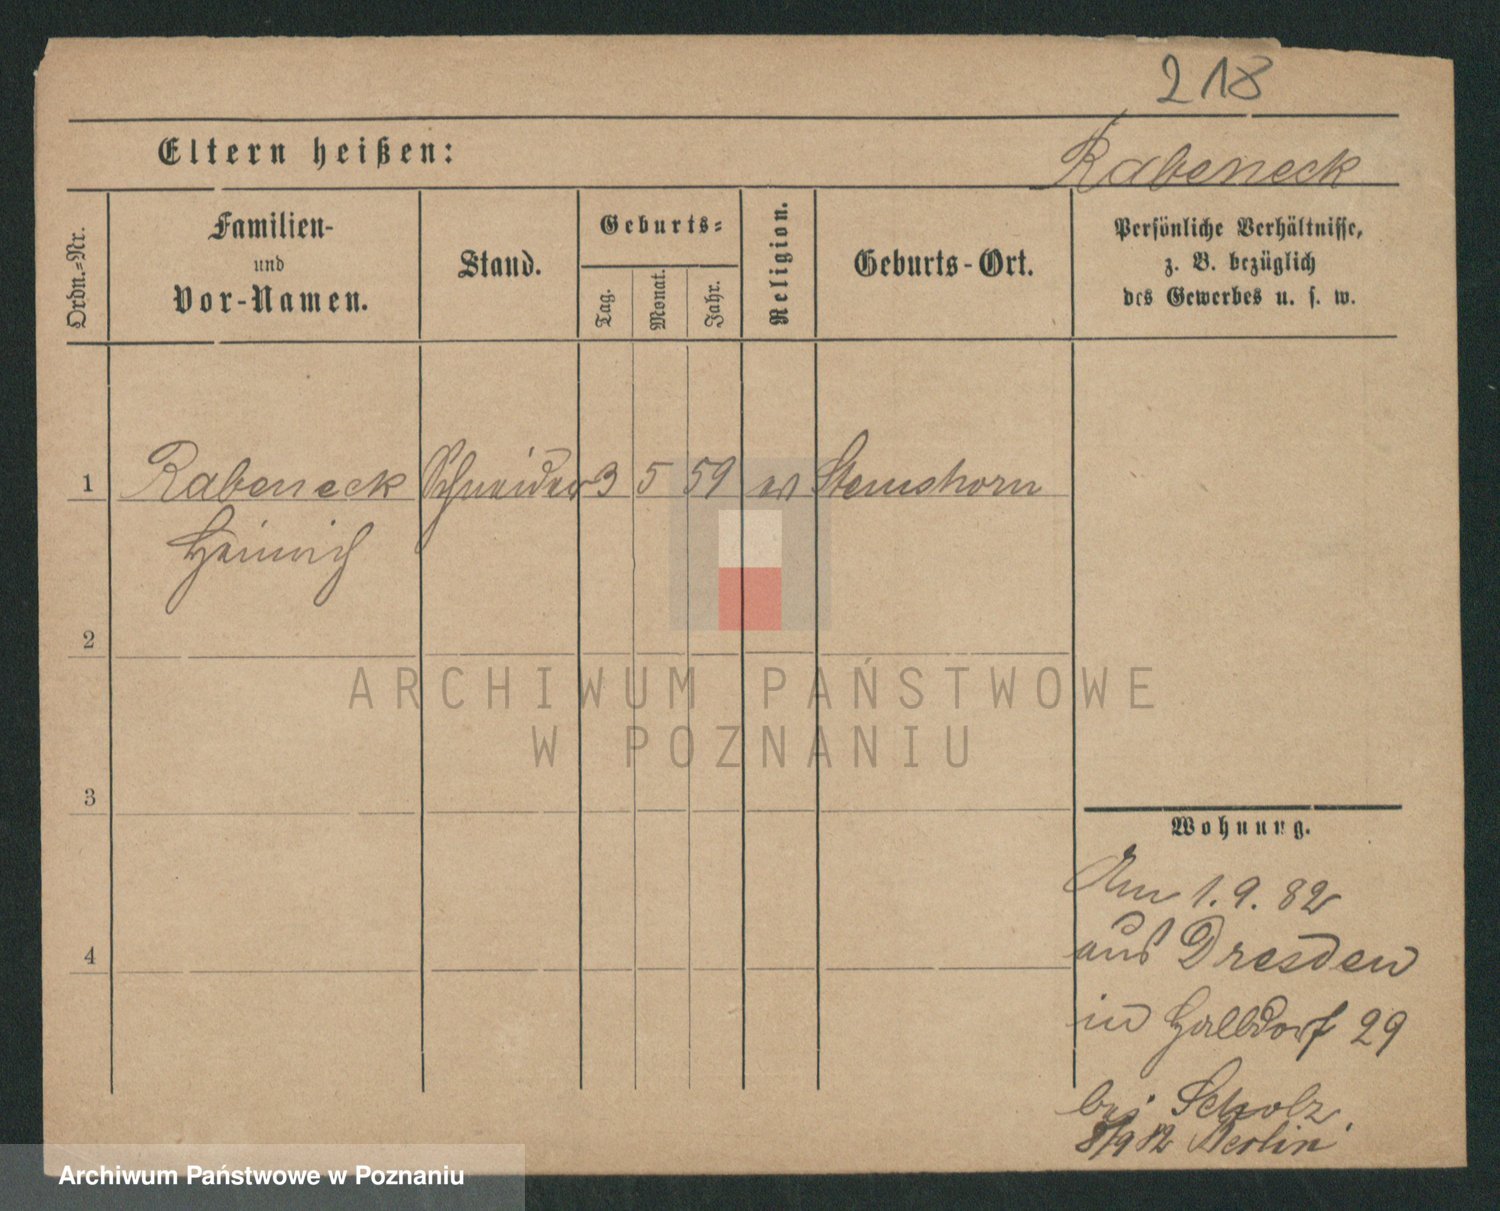 218
Eltern heißen:
Rabeneck
Ordn.-Nr.
Familien-
und
Vor-Namen.
Stand.
Geburts-
Tag.
Monat.
Jahr.
Religion.
Geburts-Ort.
Persönliche Verhältnisse,
z. B. bezüglich
des Gewerbes u. s. w.
1 Rabeneck Schneider 3 5 59 ev Stemshorn
Heinrich
2
3
4
ARCHIWUM PAŃSTWOWE
W POZNANIU
Wohnung.
Am 1. 9. 82
aus Dresden
in Halbdorf 29
bei Scholz.
8/9 82 Berlin
Archiwum Państwowe w Poznaniu